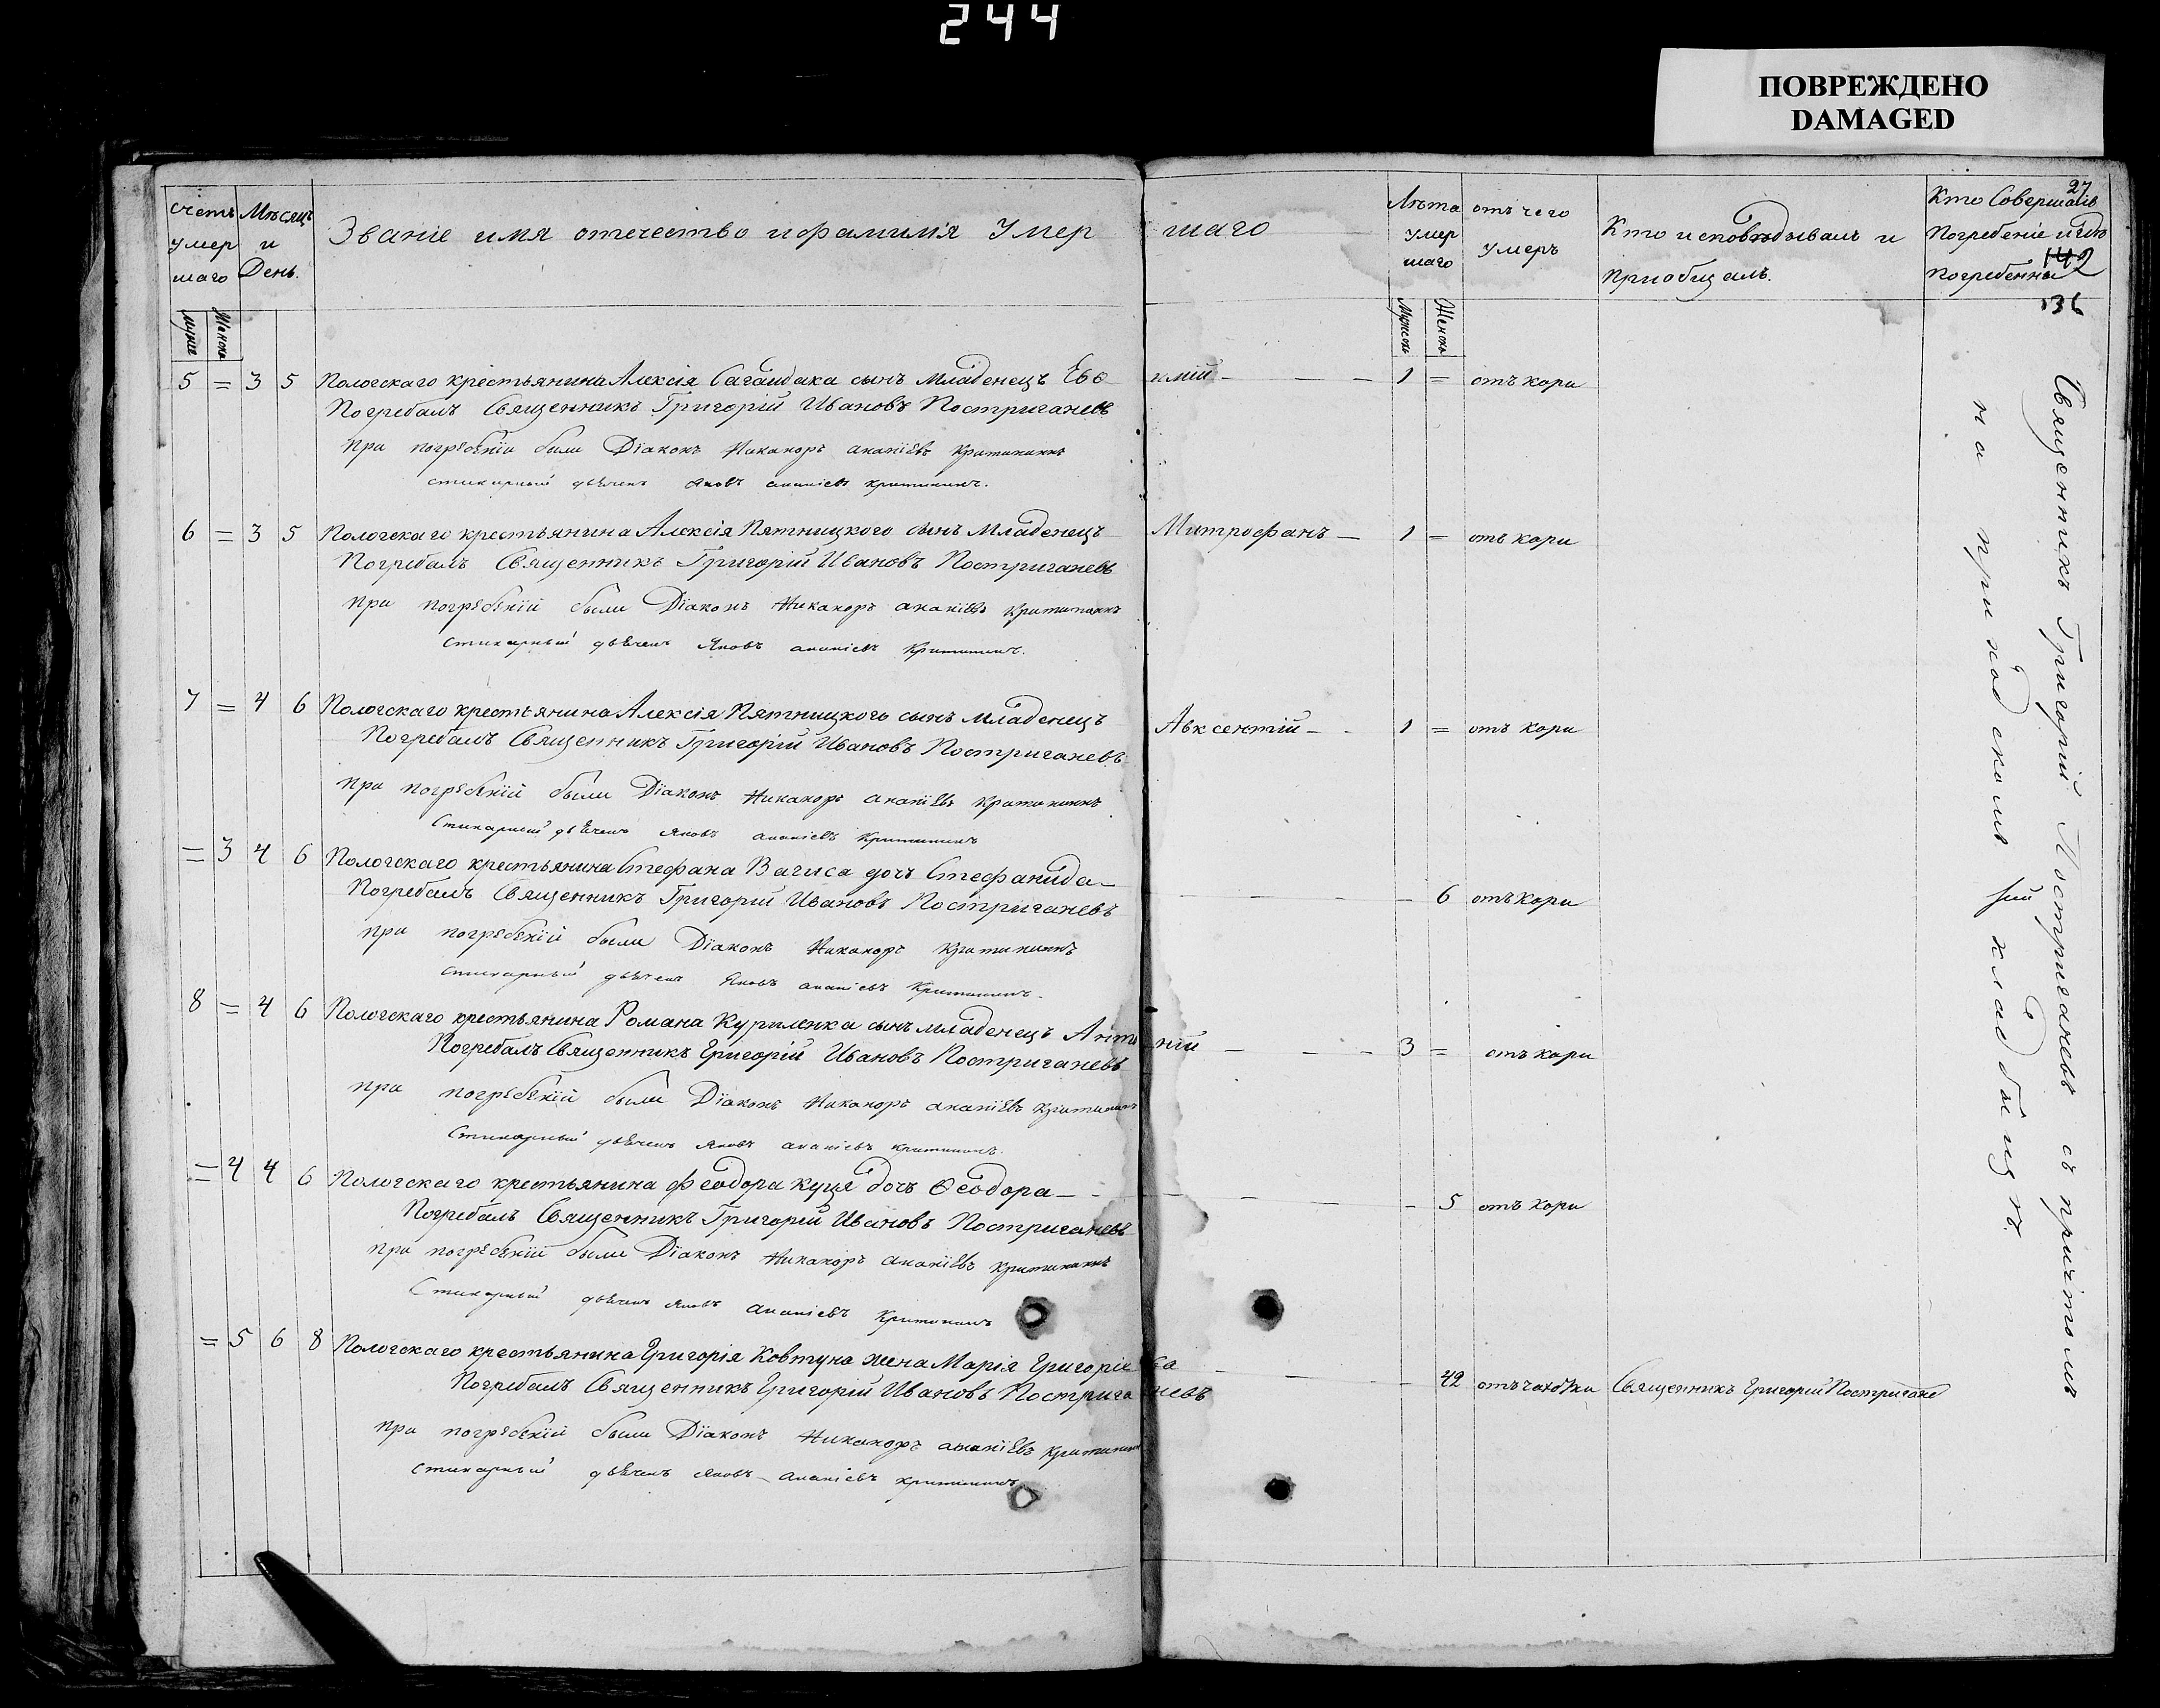 244
ПОВРЕЖДЕНО
DAMAGED
27
142
136
Счетъ умер шаго
Мѣсяцъ и День.
Званіе имя отечество и фамилія Умер шаго
Лѣта умер шаго
отъ чего умеръ
Кто исповѣдывалъ и приобщалъ.
Кто Совершалъ Погребеніе и гдѣ погребенны
мужес Женскъ
Мужескъ Женскъ
5 = 3 5 Пологскаго крестьянина Алексія Сагайдака сынъ младенецъ Евѳ имій — 1 = отъ кори
Погребалъ Священникъ Григорій Ивановъ Постриганевъ
при погребеніи были Діаконъ Никаноръ ананіевъ Критининъ
стихарный дьячекъ Яковъ ананіевъ Критининъ.
6 = 3 5 Пологскаго крестьянина Алексія Пятницкого сынъ Младенецъ Митрофанъ — 1 = отъ кори
Погребалъ Священникъ Григорій Ивановъ Постриганевъ
при погребеніи были Діаконъ Никаноръ ананіевъ Критининъ
Стихарный дьячекъ Яковъ ананіевъ Критининъ.
7 = 4 6 Пологскаго крестьянина Алексія Пятницкого сынъ младенецъ Авксентій — 1 = отъ кори
Погребалъ Священникъ Григорій Ивановъ Постриганевъ
при погребеніи были Діаконъ Никаноръ ананіевъ Критининъ
Стихарный дьячекъ Яковъ ананіевъ Критининъ
= 3 4 6 Пологскаго крестьянина Стефана Вагиса дочь Стефанида — 6 отъ кори
Погребалъ Священникъ Григорій Ивановъ Постриганевъ
при погребеніи были Діаконъ Никаноръ Критининъ
стихарный дьячекъ Яковъ ананіевъ Критининъ.
8 = 4 6 Пологскаго крестьянина Романа Куриленка сынъ младенецъ Антоній — 3 = отъ кори
Погребалъ Священникъ Григорій Ивановъ Постриганевъ
при погребеніи были Діаконъ Никаноръ ананіевъ Критининъ
Стихарный дьячекъ Яковъ ананіевъ Критининъ.
= 4 4 6 Пологскаго крестьянина Феодора Куця дочь Ѳеодора — 5 отъ кори
Погребалъ Священникъ Григорій Ивановъ Постриганевъ
при погребеніи были Діаконъ Никаноръ ананіевъ Критининъ
Стихарный дьячекъ Яковъ ананіевъ Критининъ
= 5 6 8 Пологскаго крестьянина Григорія Ковтуна жена Марія Григоріева — 42 отъ чахотки Священникъ Григорій Постриганев
Погребалъ Священникъ Григорій Ивановъ Постриганевъ
при погребеніи были Діаконъ Никаноръ ананіевъ Критининъ
Стихарный дьячекъ Яковъ ананіевъ Критининъ
Священникъ Григорій Постриганевъ съ причтомъ
на приходскомъ кладбищѣ.